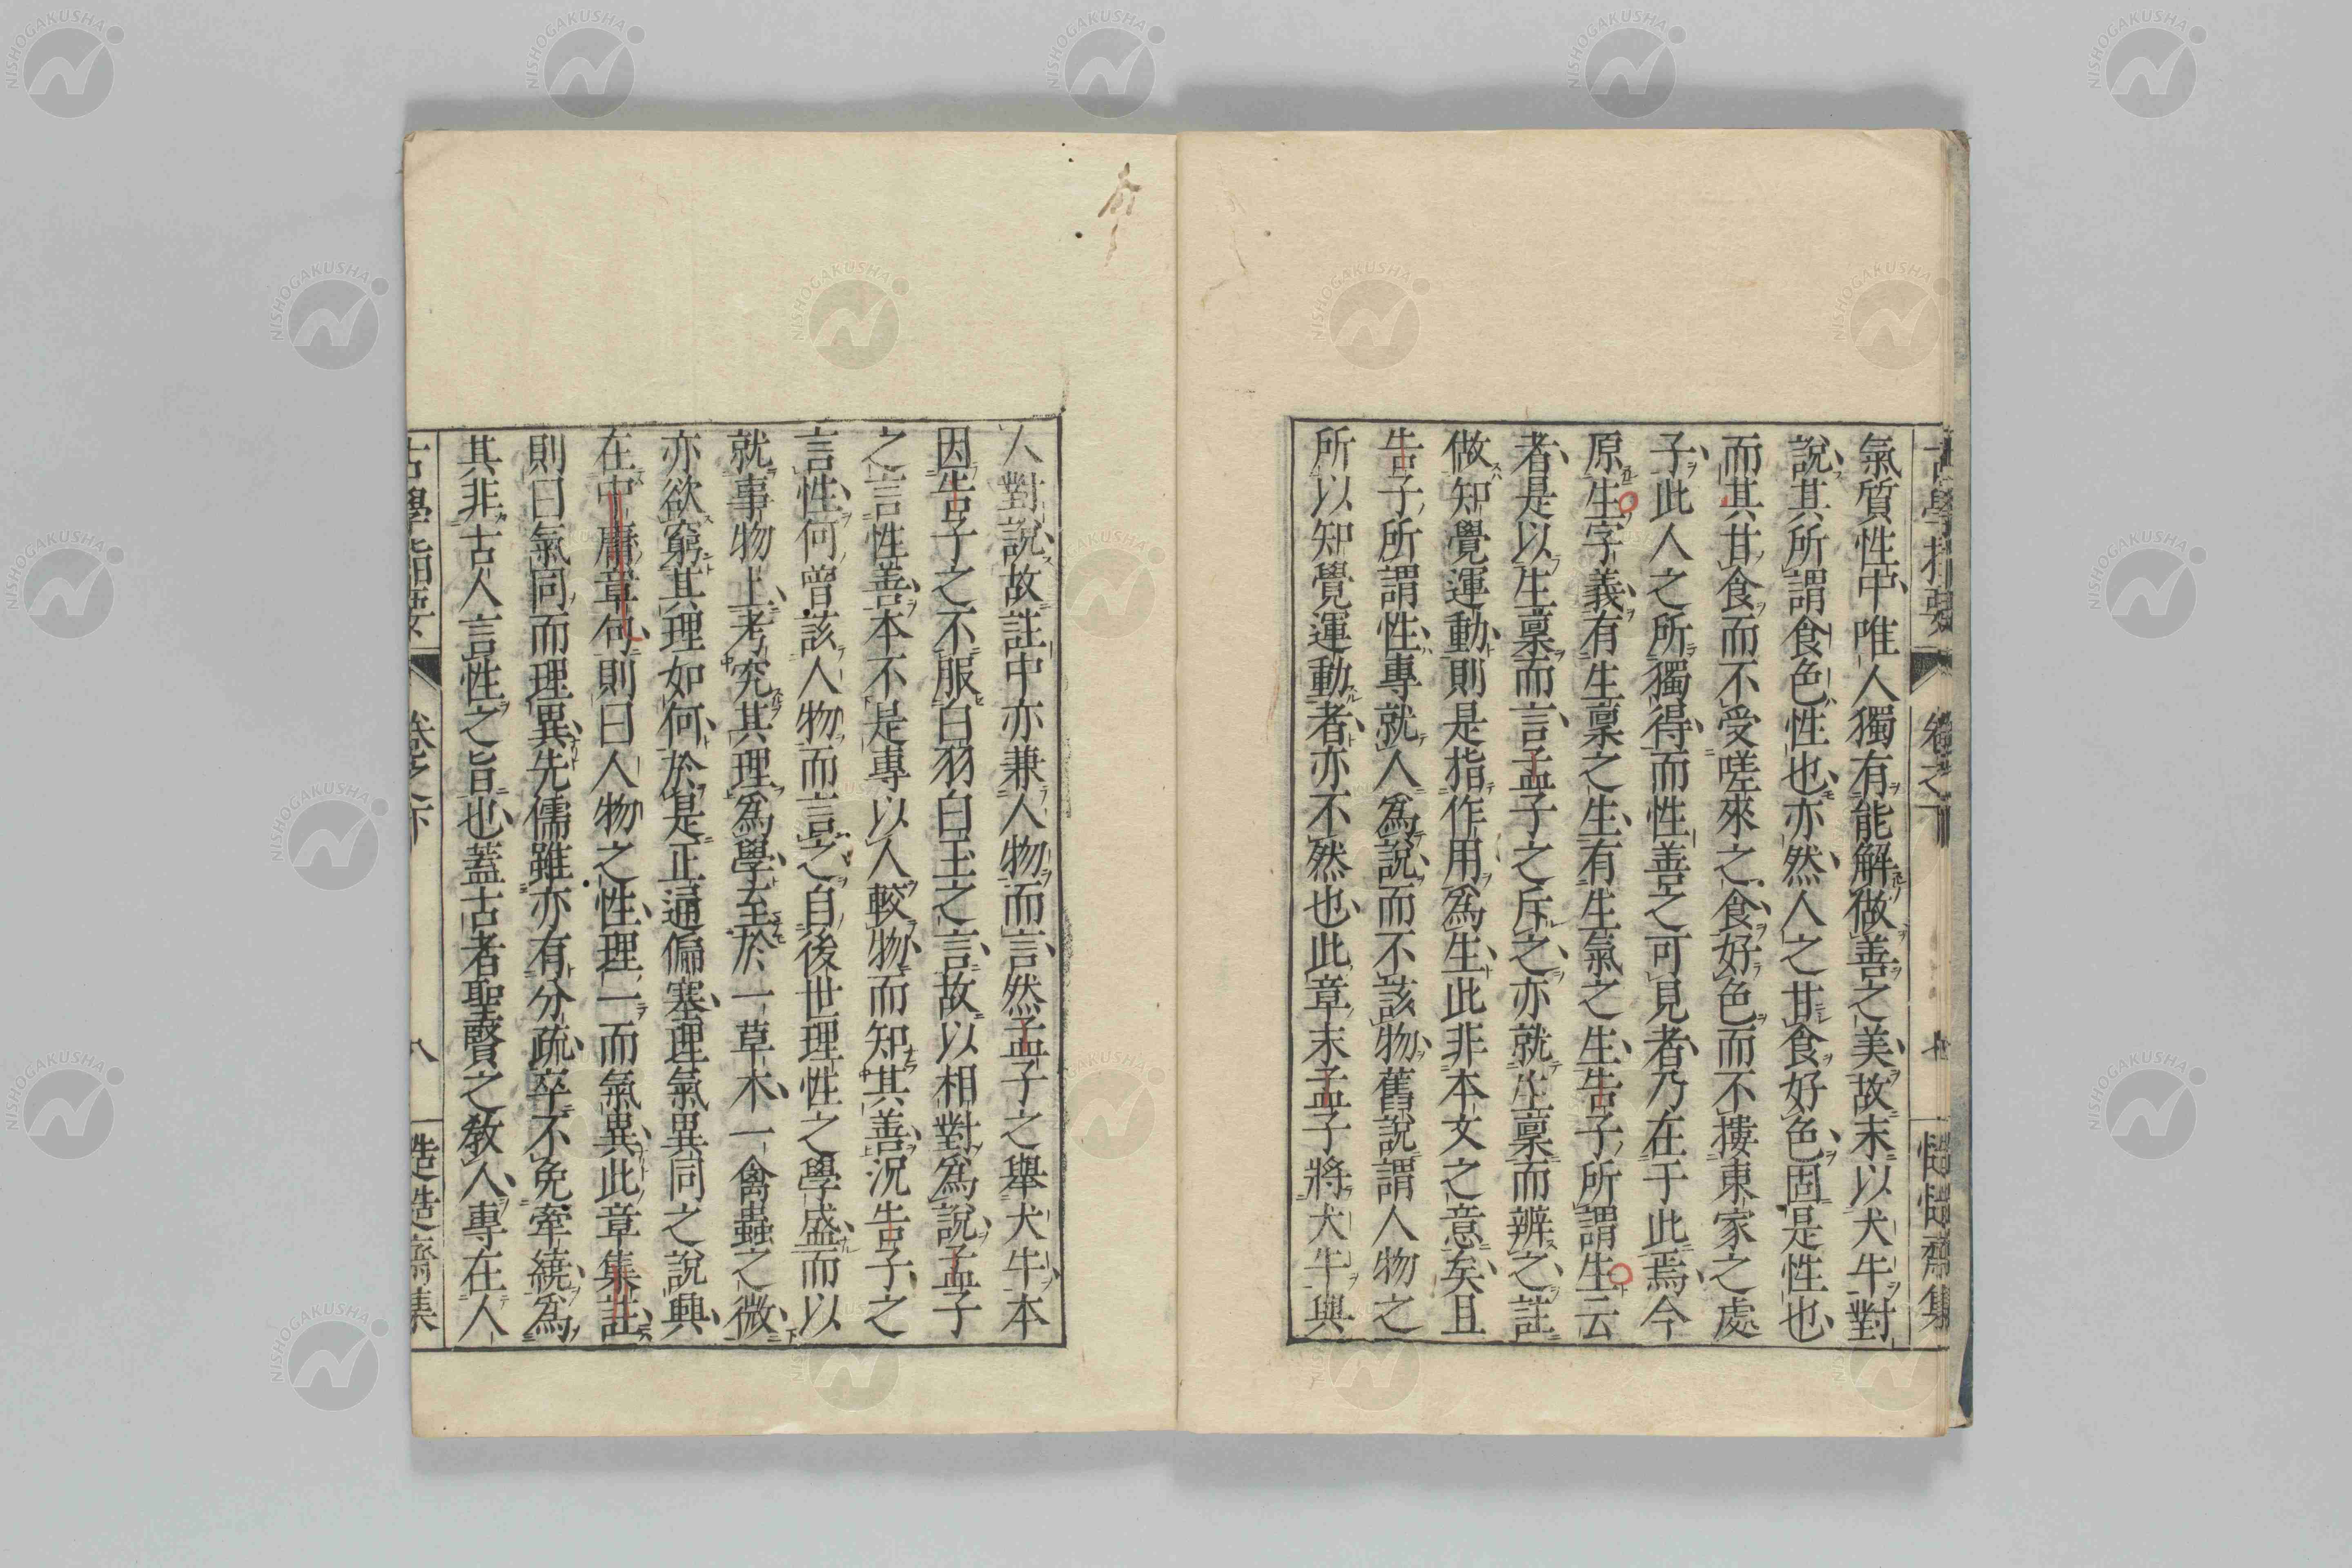 氣質性中、唯人獨有能解做善之美、故末以犬牛對
說、其所謂食色性也、亦然、人之甘食好色、固是性也、
而其甘食而不受嗟來之食、好色而不摟東家之處
子、此人之所獨得、而性善之可見者、乃在于此焉、今
原生字義、有生稟之生、有生氣之生、告子所謂生云
者、是以生稟而言、孟子之斥之、亦就生稟而辨之、註
做知覺運動、則是指作用爲生、此非本文之意矣、且
告子所謂性、專就人爲說、而不該物、舊說謂人物之
所以知覺運動者、亦不然也、此章末孟子將犬牛與
人對說、故註中亦兼人物而言、然孟子之舉犬牛、本
因告子之不服白羽白玉之言、故以相對爲說、孟子
之言性善、本不是專以人較物、而知其善、況告子之
言性、何曾該人物而言之、自後世理性之學盛、而以
就事物上考究其理爲學、至於一草木、一禽蟲之微、
亦欲窮其理如何、於是正通偏塞、理氣異同之說興、
在中庸章句、則曰人物之性、理一而氣異、此章集註、
則曰氣同而理異、先儒雖亦有分疏、卒不免牽繞爲
其非古人言性之旨也、蓋古者聖賢之教人、專在人
古學指要
卷之下
七
慥慥齋集
古學指要
卷之下
八
慥慥齋集
NISHOGAKUSHA